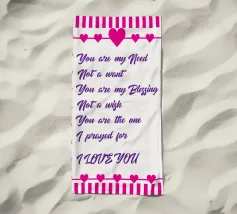 You are my Need
Not a want
You are my Blessing
Not a wish
You are the one
I prayed for
I LOVE YOU